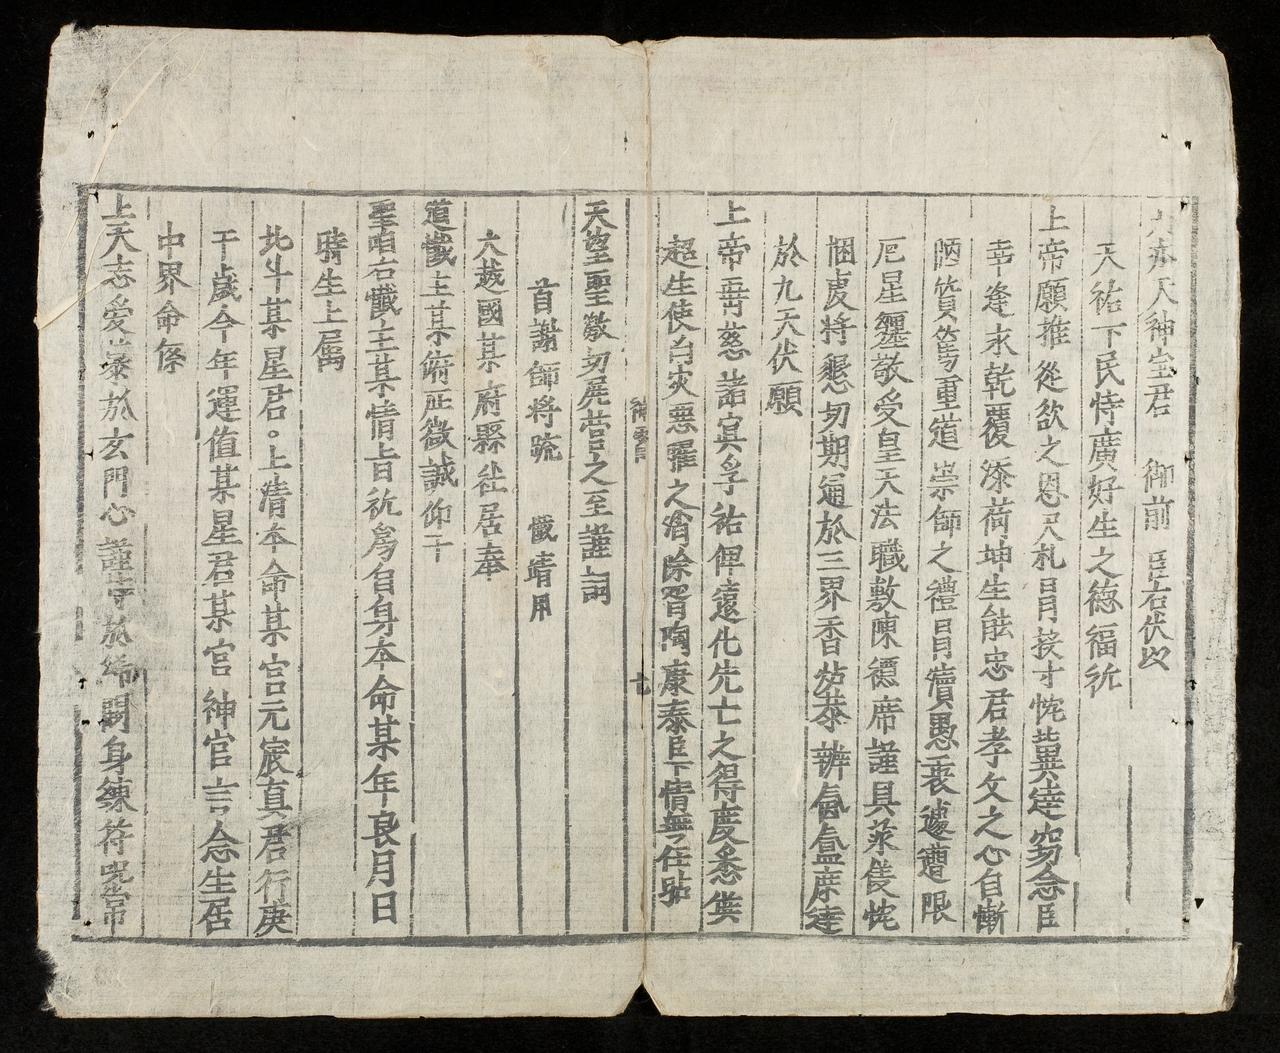 天神宝君 御前 臣右伏以
天祐下民恃廣好生之德福祈
上帝願推從欲之恩尺札冐披寸忱冀達窃念臣
幸逢永乾覆添荷坤生能忠君孝父之心自慚
陋質篤重道崇師之禮冐凟愚衷遽遭限
厄星𨇾敬受皇天法職敷陳德席謹具菜儀忱
悃處將懇切期通於三界香炉恭辨氤氳庶達
於九天伏願
上帝毋慈諸冥孚祐俾遠化先亡之得度悉僕
超生使台灾惡罹之消除胥陶康泰臣下情無任
神霄
十七
天望聖激切屏营之至謹詞
首謝師將䟽 懺靖用
大越國某府縣社居奉
道懺主某俯瀝微誠仰干
聖𦣱右懺主某情旨祈為自身本命某年良月日
時生上属
北斗某星君。上清本命某宮元宸真君行庚
干歲今年運值某星君某宮神官言念生居
中界命係
上天志愛慕於玄門心謹守於 身練符咒常